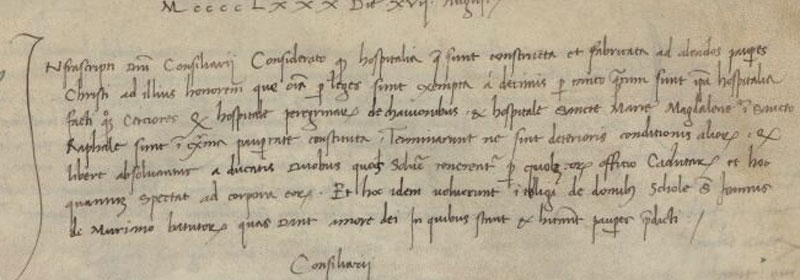 M cccc L x x x Die xvij. Augusti.
Infrascripti Dni Consiliarij Considerato qȝ hospitalia q̄ sunt constructa et fabricata ad alendos paupes
Christi ad illius honorem que oīa p̄ leges sunt exempta a decimis p tanto sunt ipa hospitalia
facti Cerciores & hospitale peregrinaꝝ de chauionibus . & hospitale Sancte Marie Magdalene ī Sancto
Raphaele sunt ī exma paupertate constituta : Terminarunt ne sint deterioris conditionis alioꝝ . &
libere absoluantur a ducatis duobus quos soluē tenerentꝰ p̄ quolȝ eoꝝ officio Cadutaꝝ et hoc
quantum spectat ad corpora eoꝝ . Et hoc idem uoluerunt ītelligi de domibꝰ Schole S Joannis
de Muriano batutoꝝ quas dant amore dei In quibus stant & hītant paupes p̄dicti /
Consiliarij